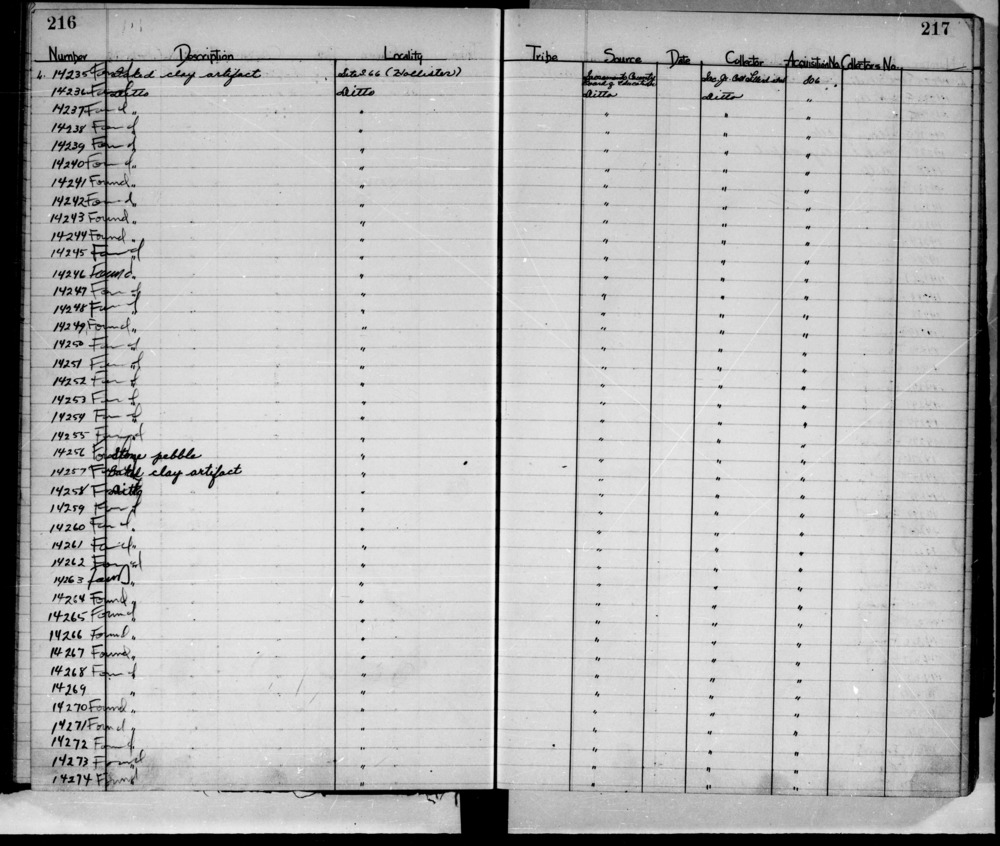 216
217
Number Description Locality Tribe Source Date Collector Acquisition No. Collectors No.
14235 Found Baked clay artifact Site S 66 (Hollister) Sacramento County Board of Education Sac. Jr. Coll. 206
14236 Found Ditto Ditto Ditto Ditto "
14237 Found " " " " "
14238 Found " " " "
14239 Found " " " "
14240 Found " " " " "
14241 Found " " " " "
14242 Found " " " "
14243 Found " " " " "
14244 Found " " " " "
14245 Found " " " " "
14246 Found " " " " "
14247 Found " " " "
14248 Found " " " " "
14249 Found " " " " "
14250 Found " " " " "
14251 Found " " " " "
14252 Found " " " " "
14253 Found " " " " "
14254 Found " " " "
14255 Found " " " "
14256 Found Stone pebble " " " "
14257 Found Baked clay artifact " " " "
14258 Found Ditto " " " "
14259 Found " " " " "
14260 Found " " " " "
14261 Found " " " " "
14262 Found " " " " "
14263 Found " " " " "
14264 Found " " " " "
14265 Found " " " " "
14266 Found " " " " "
14267 Found " " " " "
14268 Found " " " " "
14269 " " " " "
14270 Found " " " " "
14271 Found " " " " "
14272 Found " " " "
14273 Found " " " " "
14274 Found " " " "